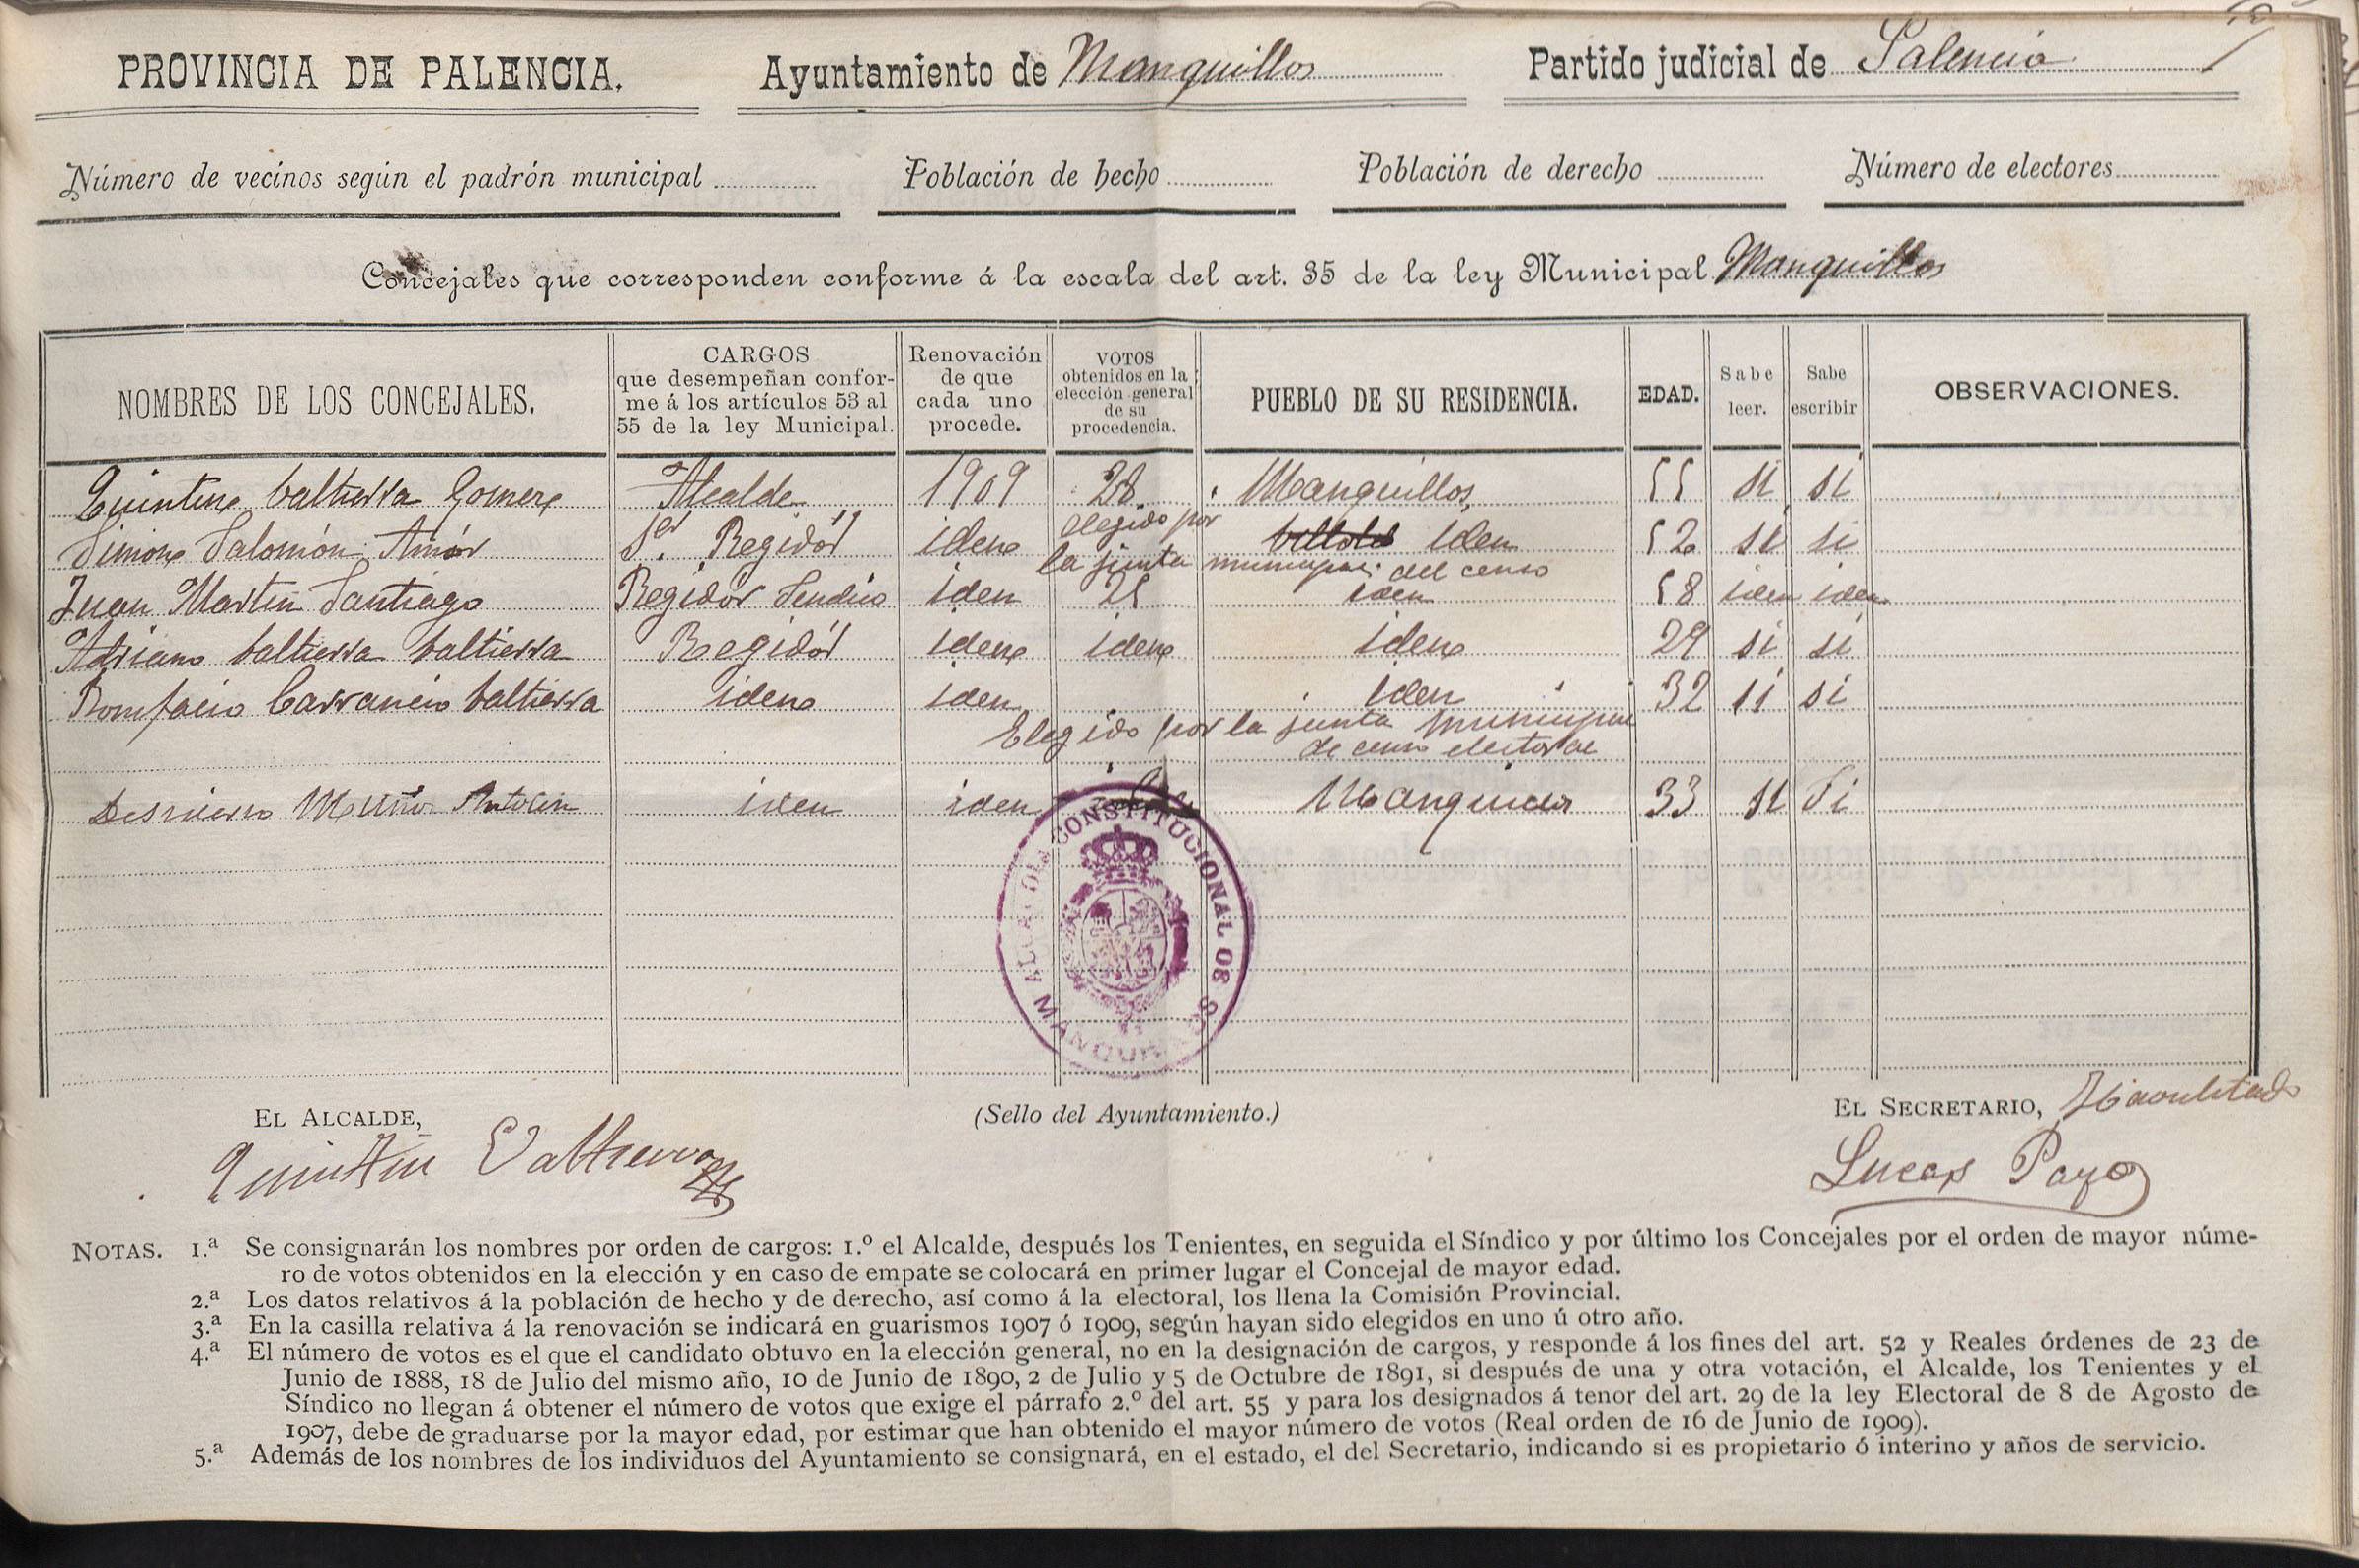 PROVINCIA DE PALENCIA. Ayuntamiento de Manquillos Partido judicial de Palencia
Número de vecinos según el padrón municipal Población de hecho Población de derecho Número de electores
Concejales que corresponden conforme á la escala del art. 35 de la ley Municipal Manquillos
NOMBRES DE LOS CONCEJALES.
CARGOS
que desempeñan confor-
me á los artículos 53 al
55 de la ley Municipal.
Renovación
de que
cada uno
procede.
VOTOS
obtenidos en la
elección general
de su
procedencia.
PUEBLO DE SU RESIDENCIA.
EDAD.
Sabe
leer.
Sabe
escribir
OBSERVACIONES.
Quintin Valtierra Gomez Alcalde 1909 28 Manquillos 55 si si
Simon Salomón Amór 1er. Regidór iden elegido por iden 52 si si
la junta municipal del censo
Juan Martin Santiago Regidór Sindico iden 25 iden 58 iden iden
Adriano Valtierra Valtierra Regidór iden iden iden 29 si si
Bonifacio Carrancio Valtierra iden iden iden 32 si si
Elegido por la junta municipal
de censo electoral
Muñoz Antolin iden iden Manquillos 33 si Si
CONSTITUCIONAL DE MANQUILLOS
EL ALCALDE,
(Sello del Ayuntamiento.)
EL SECRETARIO, Habilitado
Quintin Valtierra
Lucas Payo
NOTAS. 1.ª Se consignarán los nombres por orden de cargos: 1.º el Alcalde, después los Tenientes, en seguida el Síndico y por último los Concejales por el orden de mayor núme-
ro de votos obtenidos en la elección y en caso de empate se colocará en primer lugar el Concejal de mayor edad.
2.ª Los datos relativos á la población de hecho y de derecho, así como á la electoral, los llena la Comisión Provincial.
3.ª En la casilla relativa á la renovación se indicará en guarismos 1907 ó 1909, según hayan sido elegidos en uno ú otro año.
4.ª El número de votos es el que el candidato obtuvo en la elección general, no en la designación de cargos, y responde á los fines del art. 52 y Reales órdenes de 23 de
Junio de 1888, 18 de Julio del mismo año, 10 de Junio de 1890, 2 de Julio y 5 de Octubre de 1891, si después de una y otra votación, el Alcalde, los Tenientes y el
Síndico no llegan á obtener el número de votos que exige el párrafo 2.º del art. 55 y para los designados á tenor del art. 29 de la ley Electoral de 8 de Agosto de
1907, debe de graduarse por la mayor edad, por estimar que han obtenido el mayor número de votos (Real orden de 16 de Junio de 1909).
5.ª Además de los nombres de los individuos del Ayuntamiento se consignará, en el estado, el del Secretario, indicando si es propietario ó interino y años de servicio.